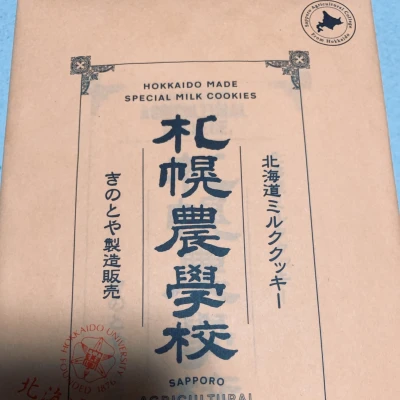 Sapporo Agricultural College
From Hokkaido
HOKKAIDO MADE
SPECIAL MILK COOKIES
北海道ミルククッキー
札幌農學校
きのとや製造販売
HOKKAIDO UNIVERSITY
1876
北海
SAPPORO
AGRICULTURAL